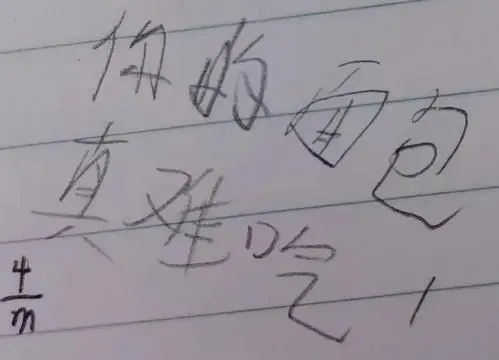 你的面包
真难吃!
4
m